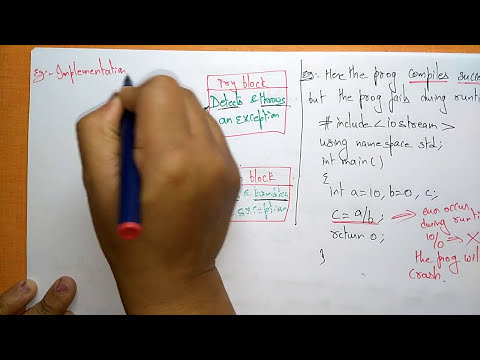 Eg:- Implementation
Try block
Detects & throws
an exception
block
handles
exception
Eg:- Here the prog compiles succe
but the prog fails during runti
#include<iostream>
using namespace std;
int main()
{
int a=10, b=0, c;
c = a/b;
return 0;
}
error occur
during runti
10/0 → X
the prog will
crash.